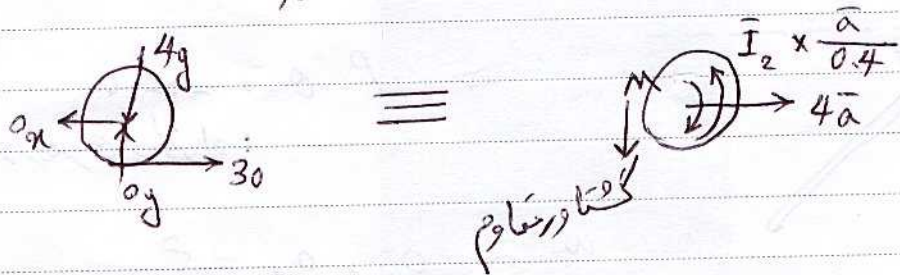 4g
Ox
Oy
30
≡
M
I̅₂ × a̅/0.4
4a̅
گشتاور مقاوم